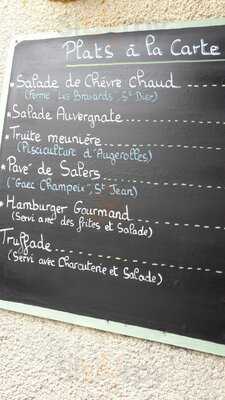 Plats à la Carte
Salade de Chèvre Chaud
(Ferme Les Bravards, St Dier)
Salade Auvergnate
Truite meunière
(Pisciculture d'Augerolles)
Pavé de Salers
("Gaec Champeix", St Jean)
Hamburger Gourmand
(Servi avec des frites et Salade)
Truffade
(Servi avec Charcuterie et Salade)